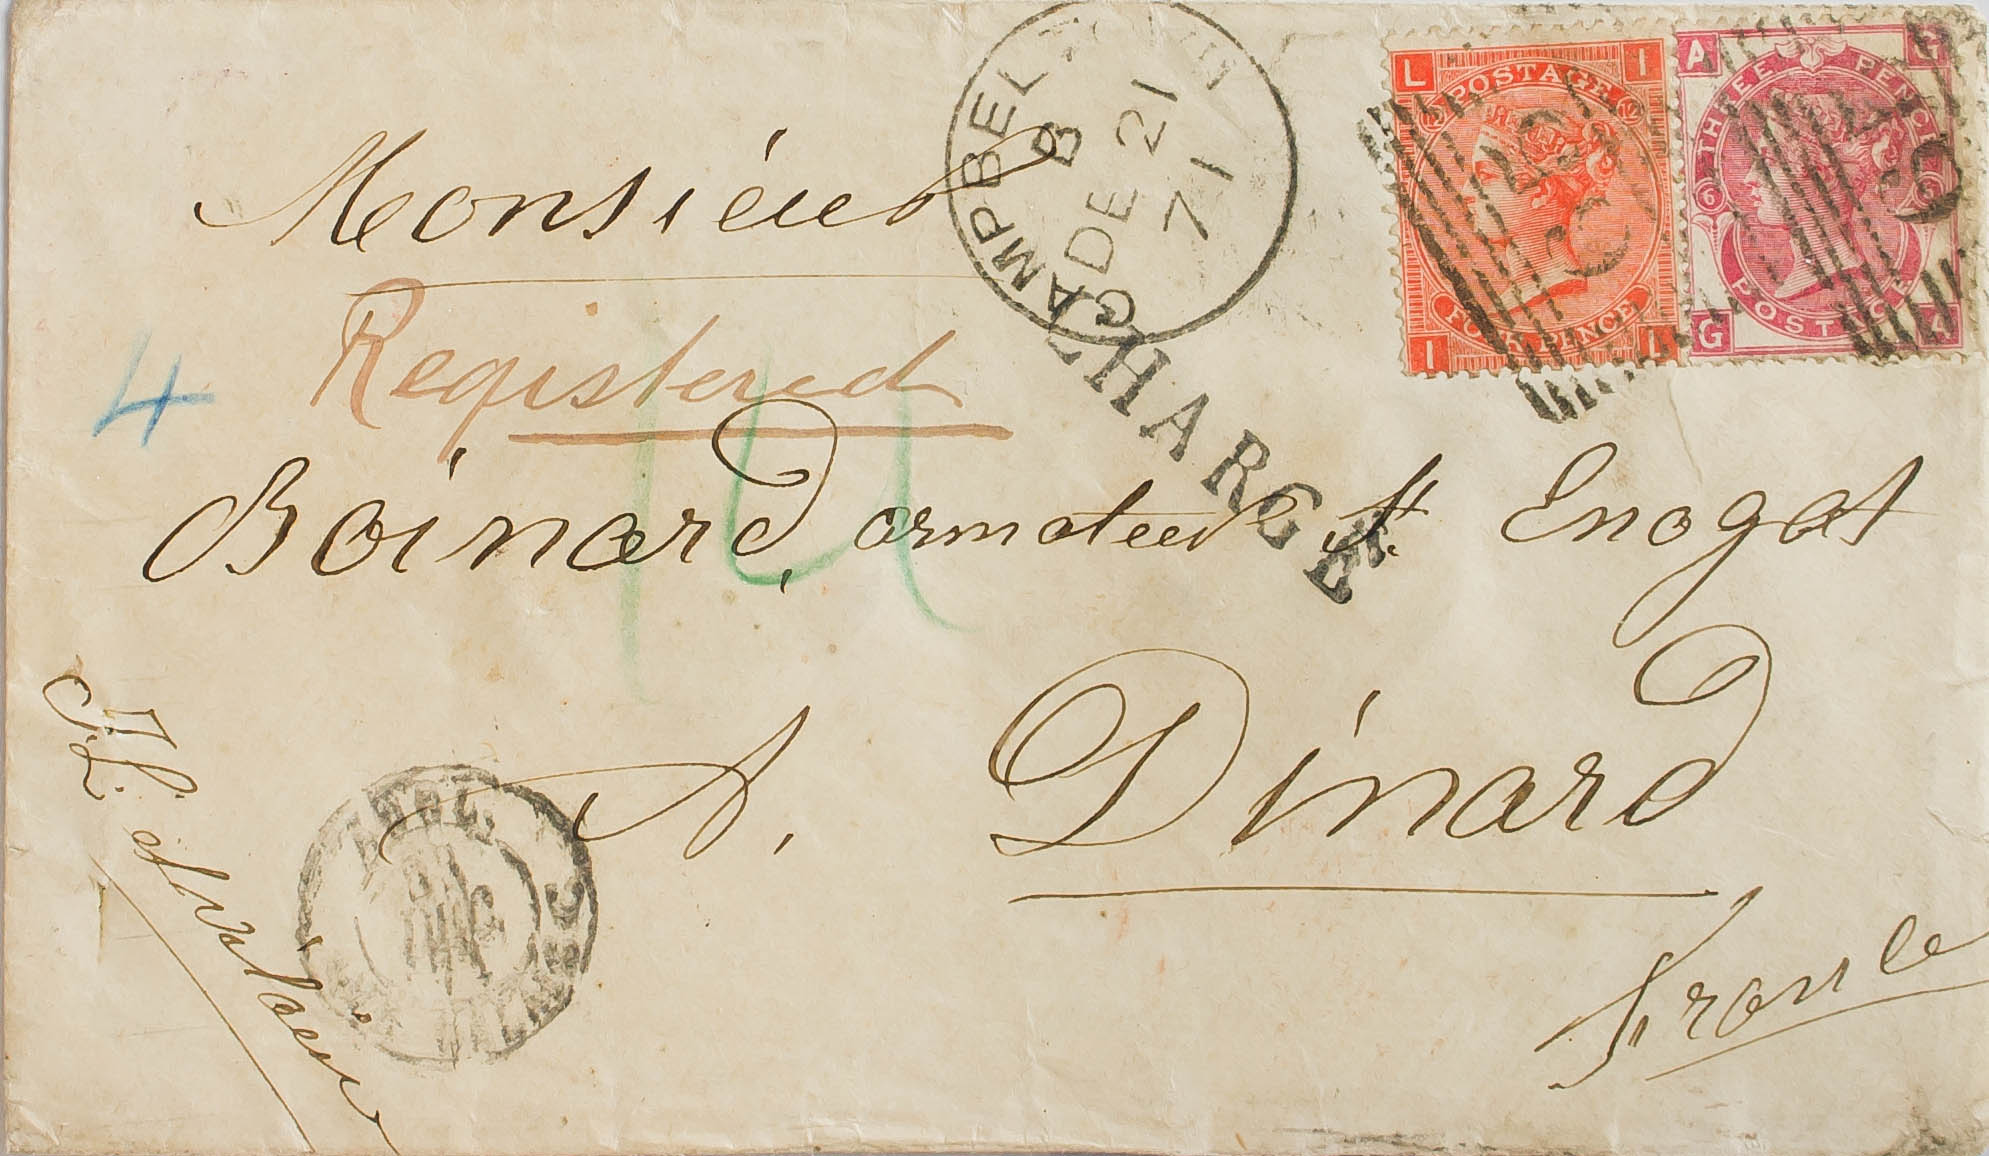 CAMPBELTOWN
B
DE 21
71
L I
POSTAGE
12 12
FOUR PENCE
I L
A G
THREE PENCE
6 6
POSTAGE
G A
Monsieur
CHARGÉ
Registered
4
Boinard, armateur St Enogat
A. Dinard
France
ANGL.